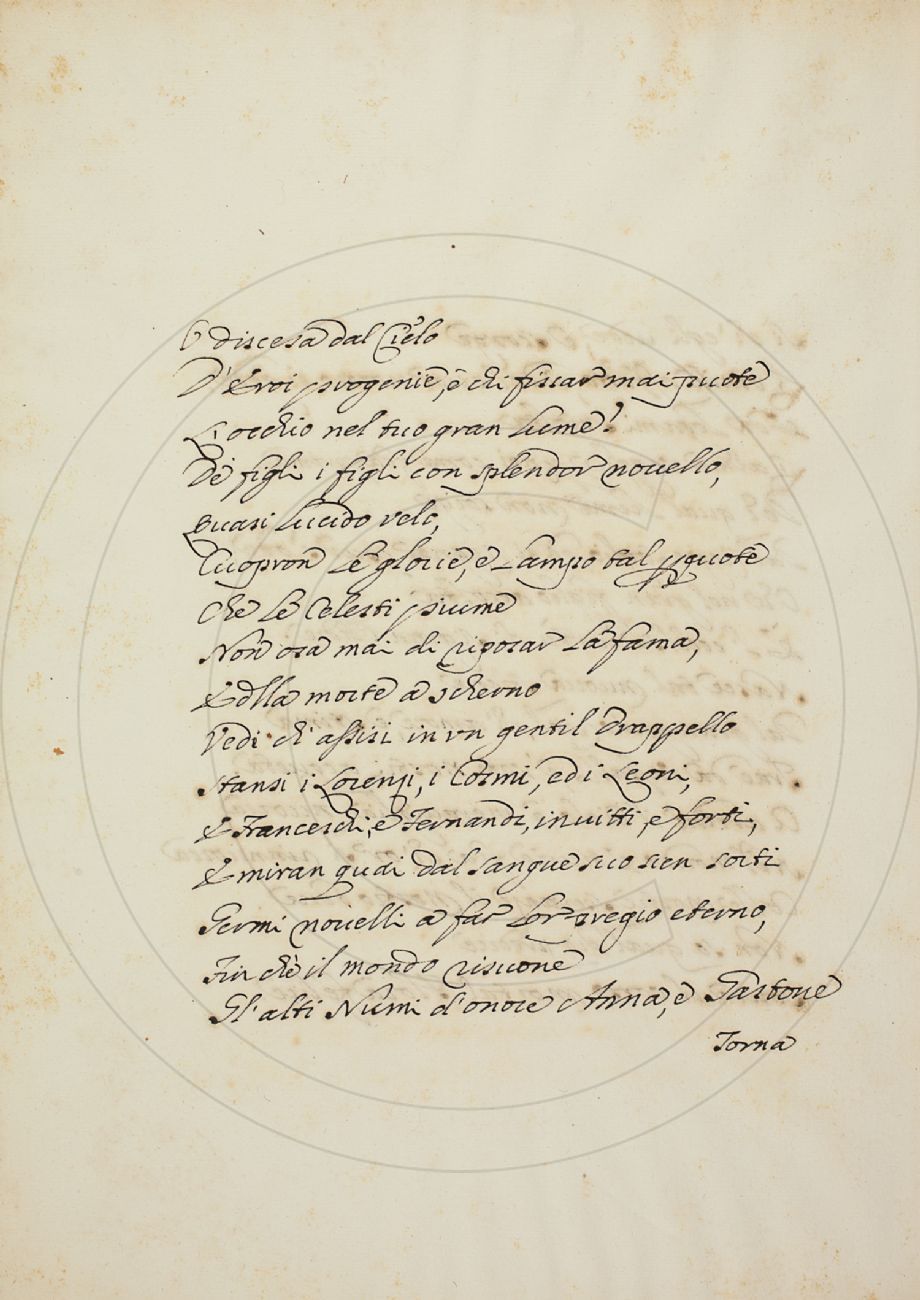 O discesa dal Cielo
D'Eroi progenie, e chi fissar mai puote
L'occhio nel tuo gran lume?
De figli i figli con splendor nouello,
Quasi lucido velo,
Cuopron le glorie, e lampo tal pquote
Che le Celesti piume
Non osa mai di riposar la fama,
E dlla morte a scherno
Vedi ch'assisi in vn gentil Drappello
Stansi i Lorenzi, i Cosmi, ed i Leoni,
E Franceschi, e Fernandi, inuitti, e forti,
E miran quai dal sangue suo sien sorti
Germi nouelli a far lor pregio eterno,
Fin chè il mondo risuone
Gl'alti Numi d'onore Anna, e Gastone
Torna